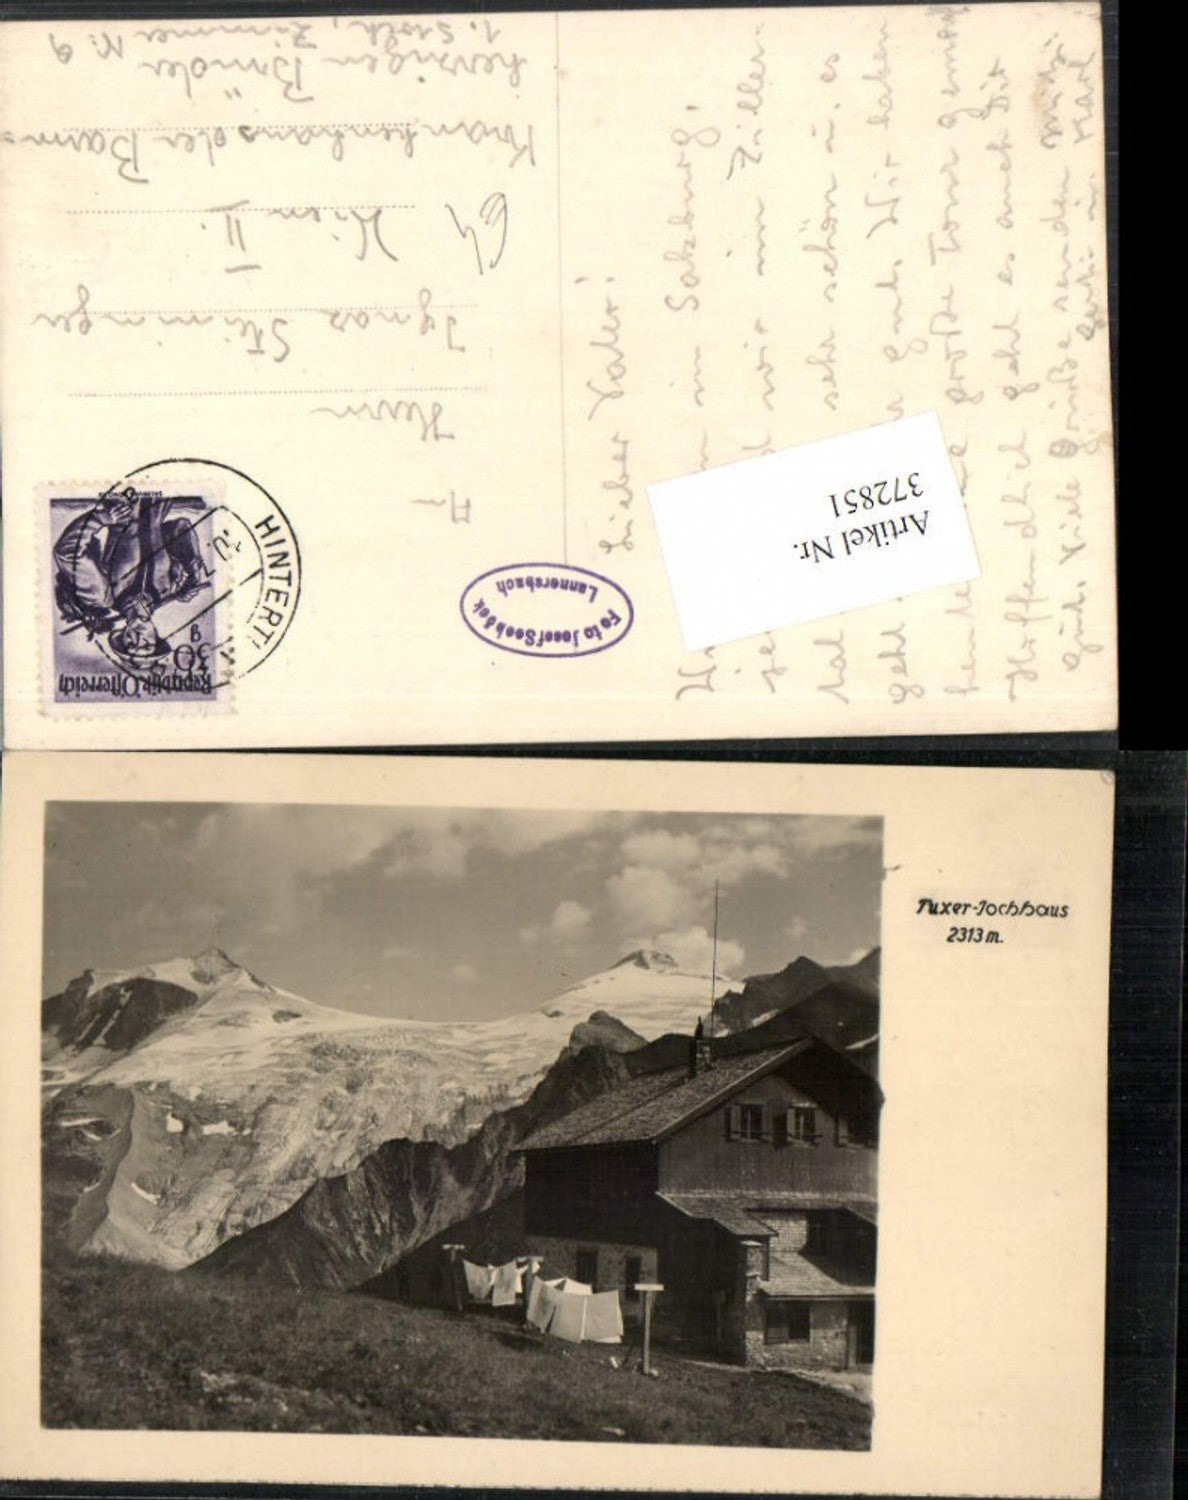 Lieber Vater!
in Salzburg,
wir im Ziller-
tal sehr schön u. es
geht gut. Wir haben
heute große Tour gemacht
Hoffendlich geht es auch Dir
gut. Viele Grüße senden
Gerti u. Karl
An
Herrn
Ignaz
Wien II.
Krankenhaus der Barm=
herzigen Brüder
1. Stock, Zimmer Nr. 9
Republik Österreich
30 g
HINTERT
Foto Josef Seeböck
Lannersbach
Artikel Nr.
372851
Tuxer-Jochhaus
2313 m.